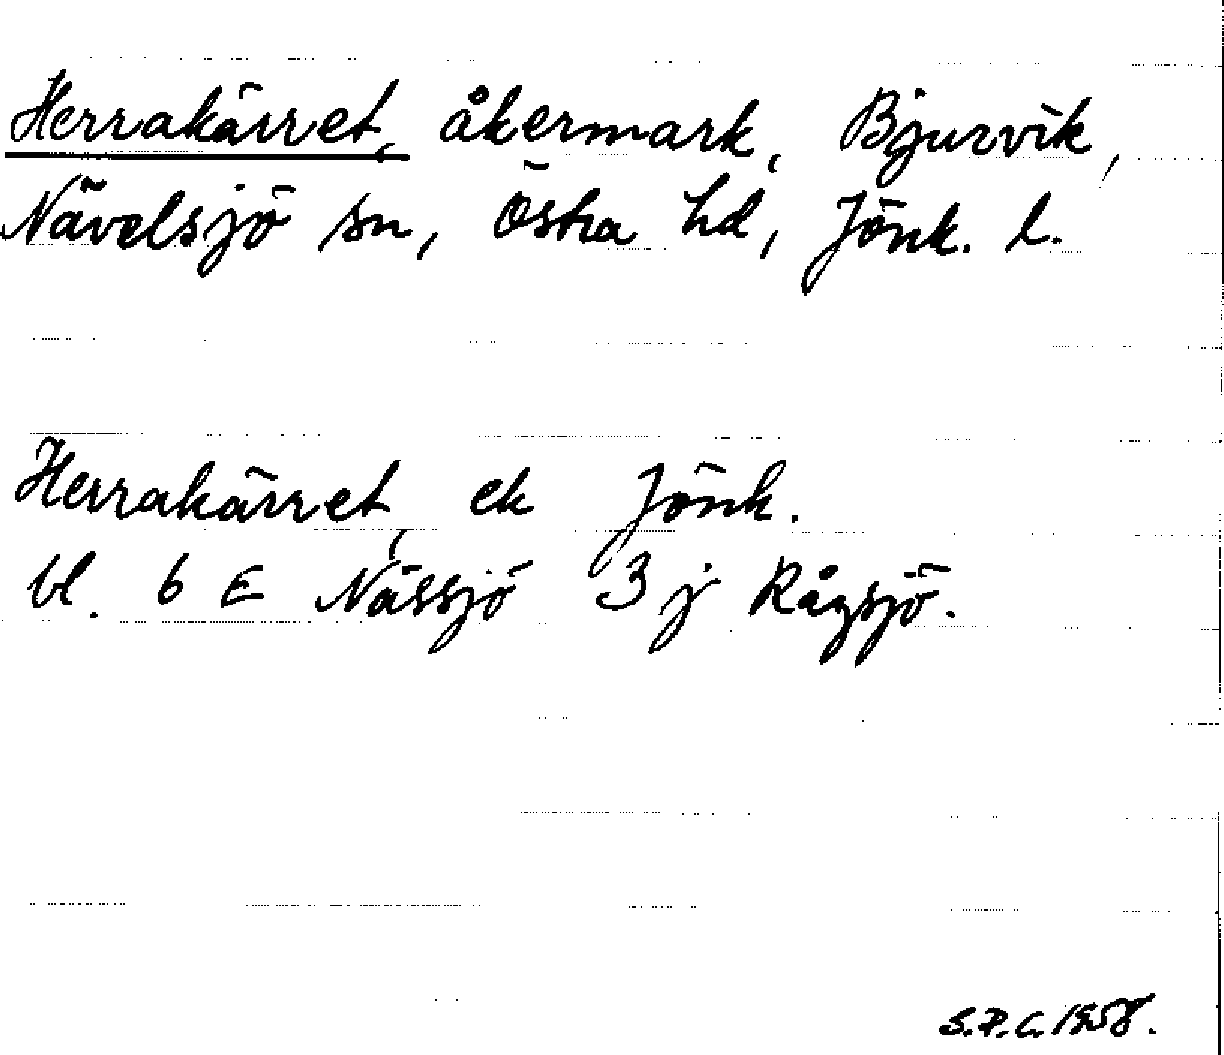 Herrakärret, åkermark, Bjurvik,
Nävelsjö sn, Östra hd, Jönk. l.
Herrakärret, ek Jönk.
bl. 6 E Nässjö 3 j Rågsjö.
S.P.C. 1958.